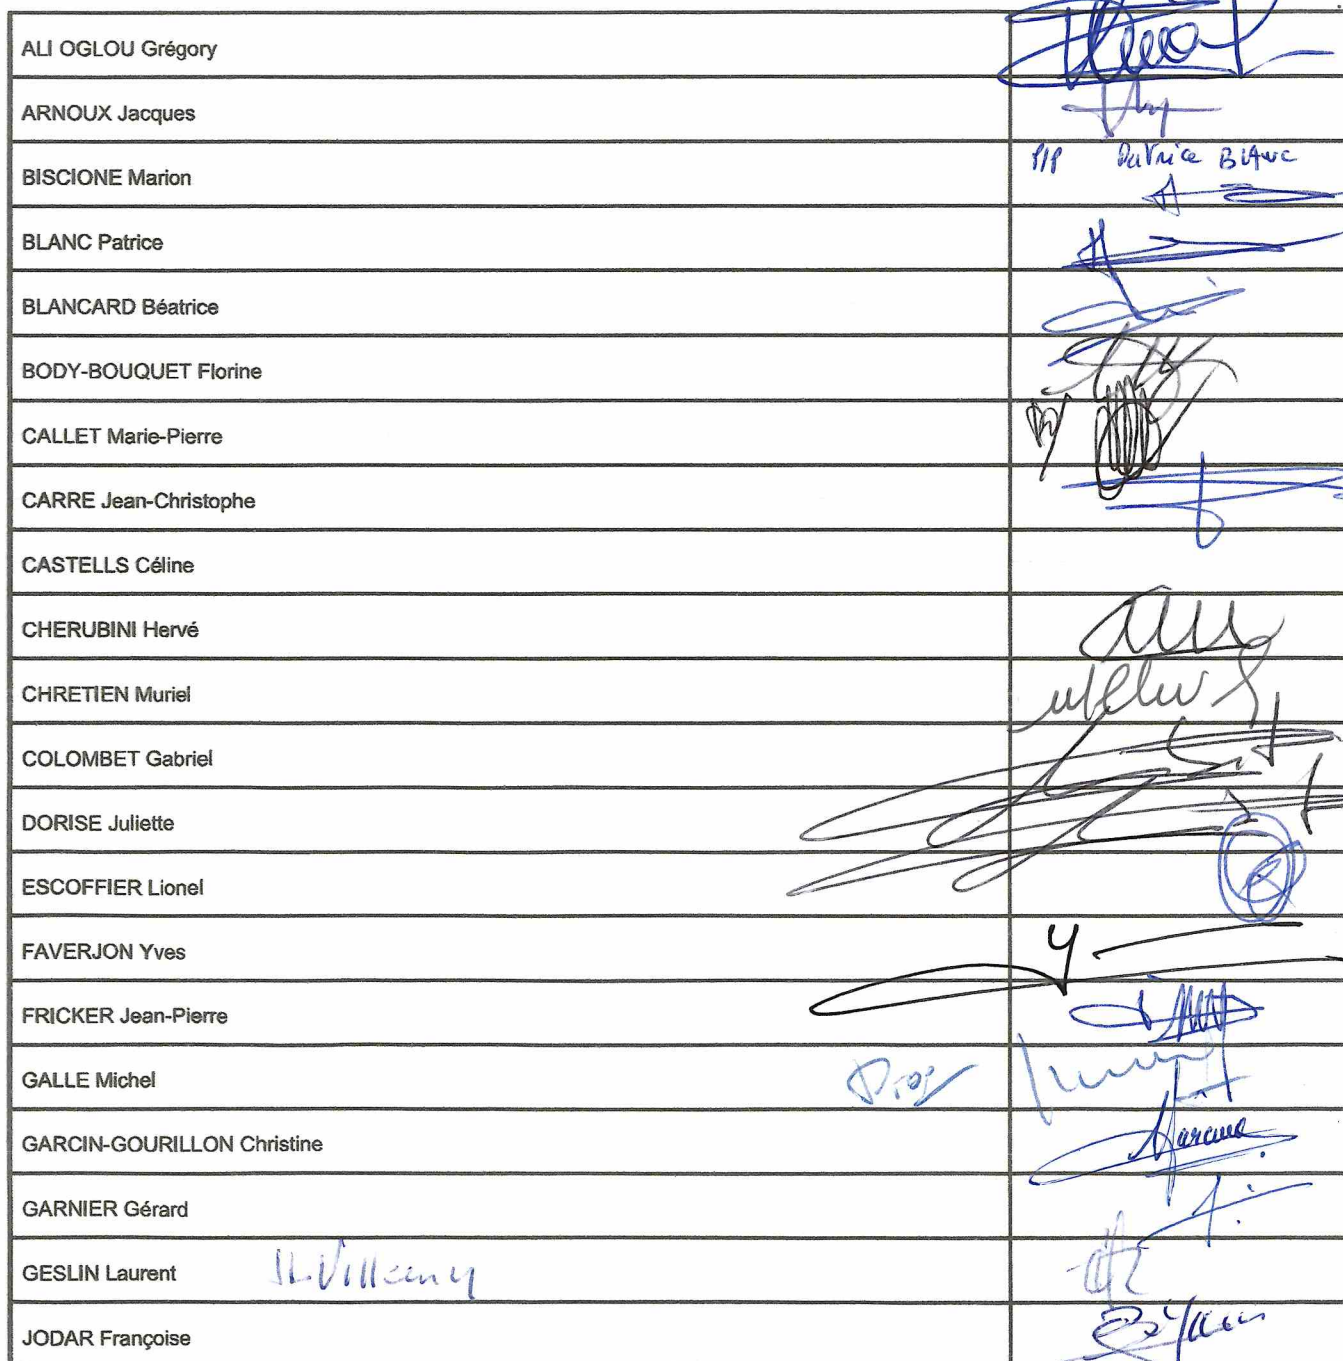 ALI OGLOU Grégory
ARNOUX Jacques
BISCIONE Marion
P/P Patrice BLANC
BLANC Patrice
BLANCARD Béatrice
BODY-BOUQUET Florine
CALLET Marie-Pierre
CARRE Jean-Christophe
CASTELLS Céline
CHERUBINI Hervé
CHRETIEN Muriel
COLOMBET Gabriel
DORISE Juliette
ESCOFFIER Lionel
FAVERJON Yves
FRICKER Jean-Pierre
GALLE Michel
GARCIN-GOURILLON Christine
GARNIER Gérard
GESLIN Laurent
JODAR Françoise